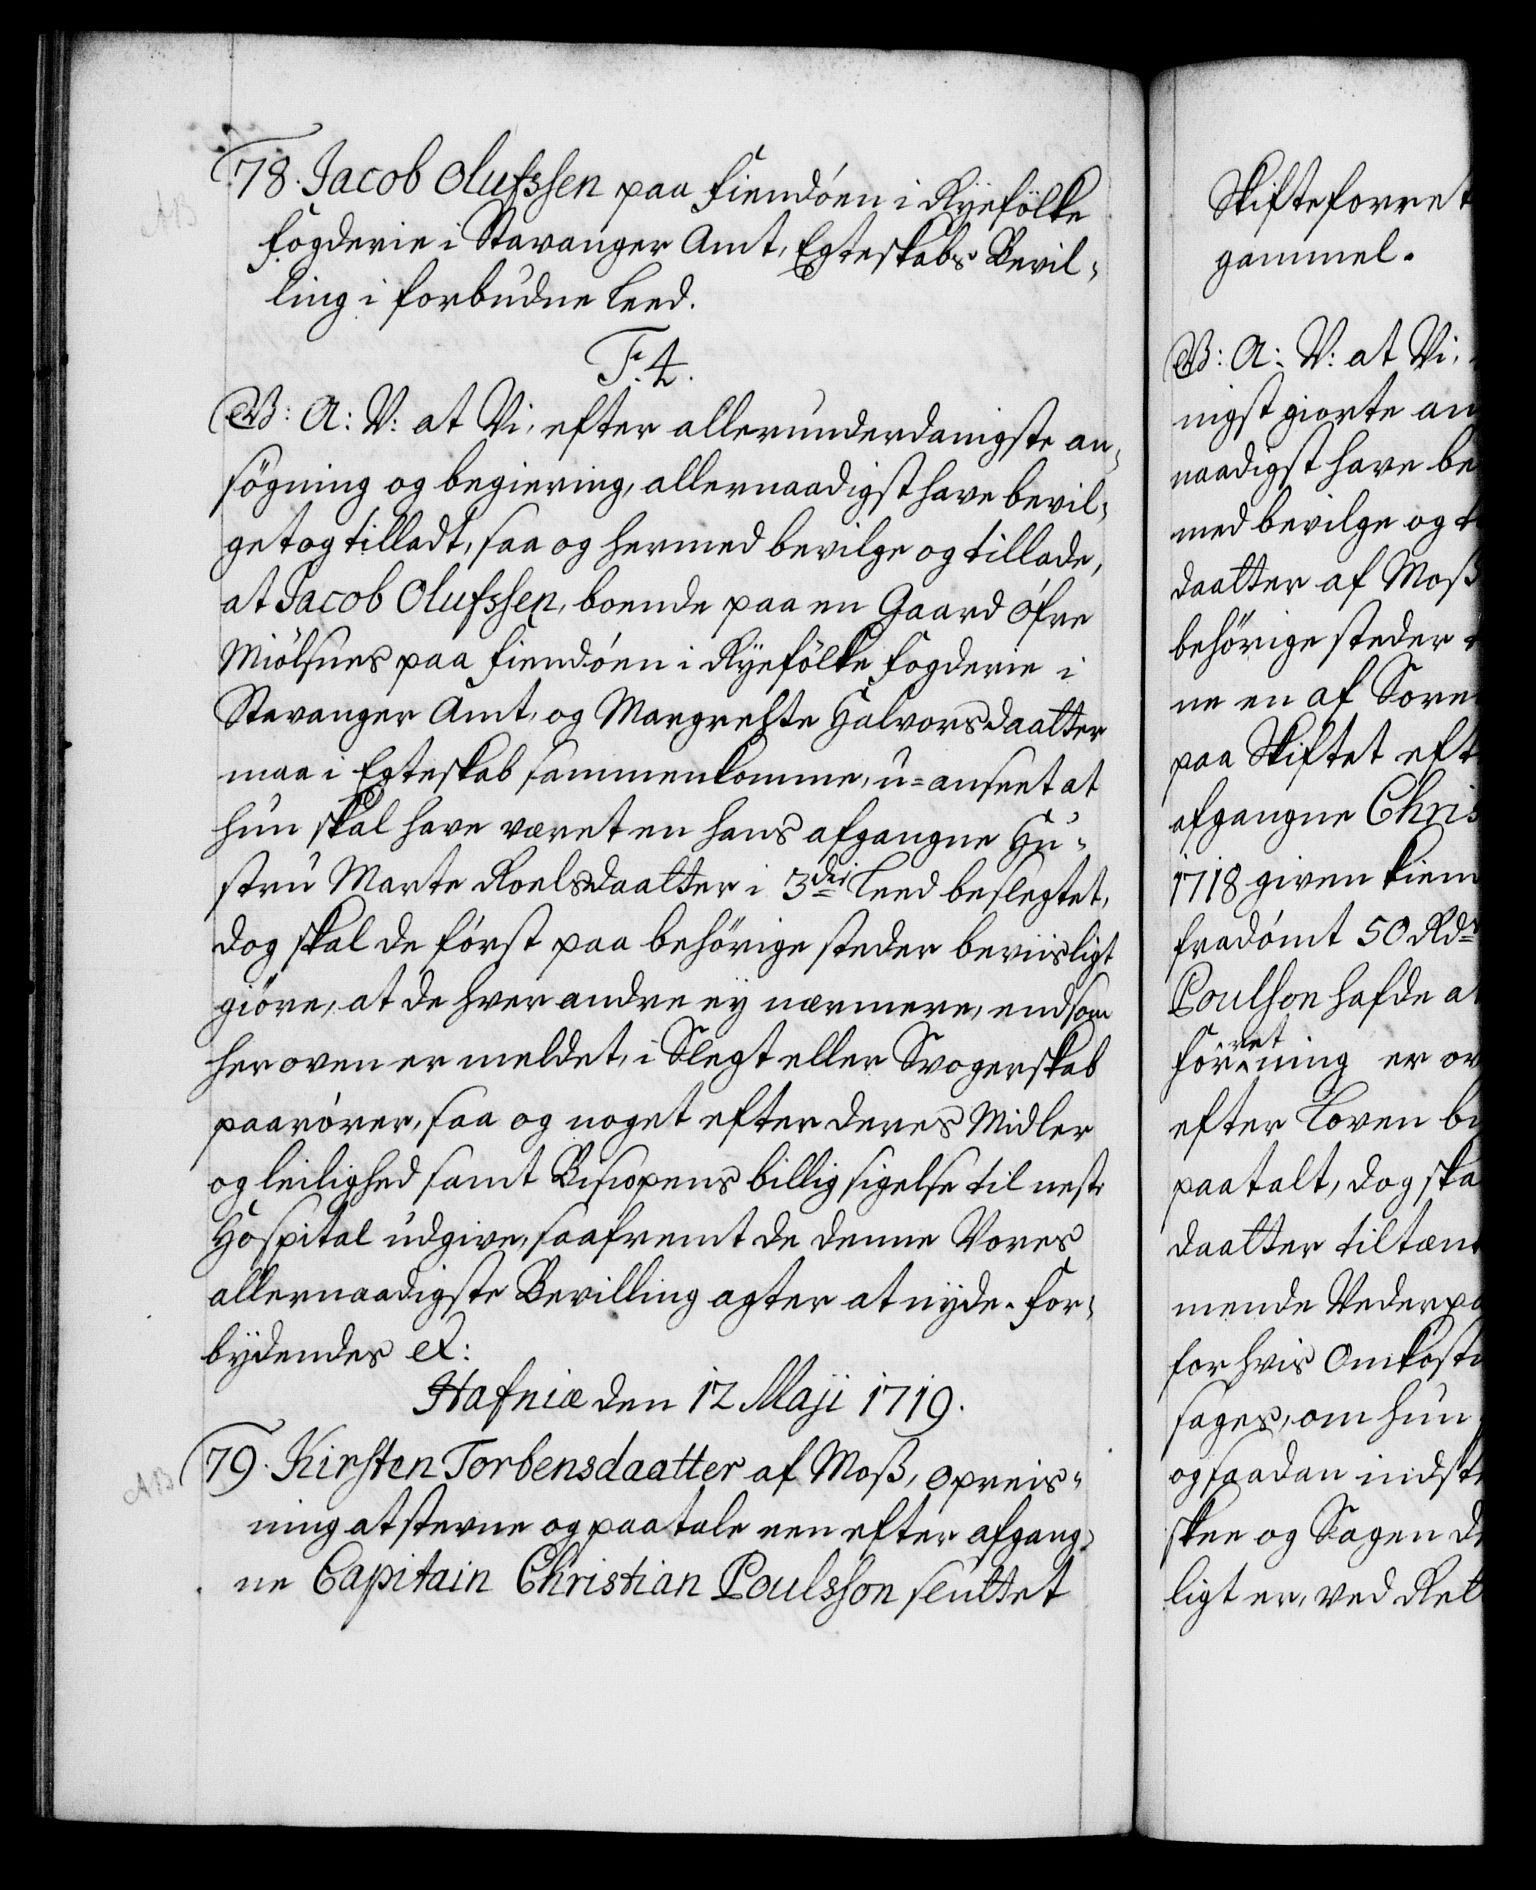 78. Jacob Olufssen paa Fiendöen i Ryefölke
AB
Fogderie i Stavanger Amt, Egteskabs Bevil-
ling i forbudne Leed.
F. 4.
V: A: V: at Vi, efter allerunderdanigste an-
søgning og begiering, allernaadigst have bevil-
get og tilladt, saa og hermed bevilge og tillade,
at Jacob Olufssen, boende paa en Gaard öfre
Miölsnes paa Fiendöen i Ryefölke Fogderie i
Stavanger Amt, og Margrehte Halvorsdaatter
maa i Egteskab sammenkomme, u-anseet at
hun skal have været en hans afgangne Hu-
stru Marte Roelsdaatter i 3die Leed beslegtet,
dog skal de först paa behörige steder beviisligt
giöre, at de hver andre ey nærmere, end som
her oven er meldet, i Slegt eller Svogerskab
paarörer, saa og noget efter deres Midler
og leilighed samt Bispens billigsigelse til neste
Hospital udgive, saafremt de denne Vores
allernaadigste Bevilling agter at nyde. For-
bydendes &:
Hafniæ den 12 Maji 1719.
79. Kirsten Torbensdaatter af Moß, opreis-
AB
ning at stevne og paatale een efter afgang-
ne Capitain Christian Poulsson sluttet
Skifteforret
gammel.
V: A: V: at Vi,
nigst giorte an
naadigst have be
med bevilge og t
daatter af Moß
behörige steder
ne en af Soren
paa Skiftet eft
afgangne Chris
1718 given kien
fradömt 50 Rdr
Poulsson hafde a
forretning er ov
efter Loven b
paatalt, dog ska
daatter tiltæn
mende Vederpa
for hvis Omkost
sages, om hun
og saadan indst
skee og Sagen d
ligt er, ved Rett